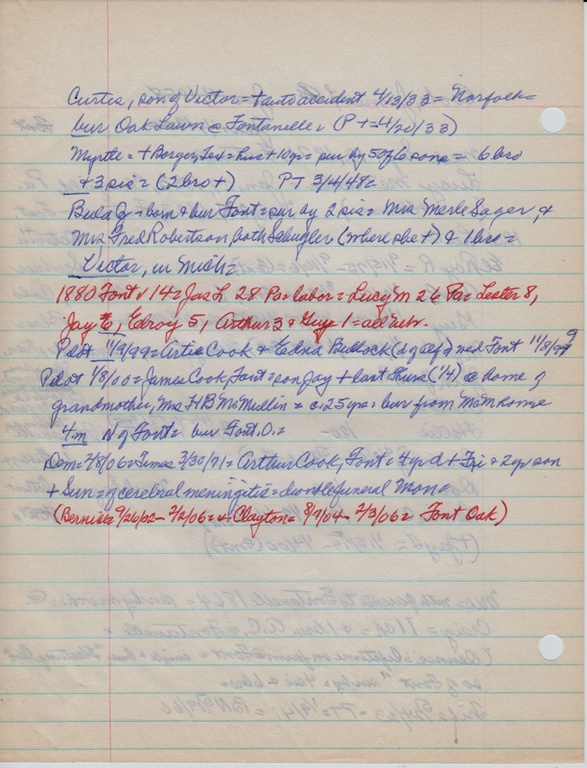 Curtis, son of Victor = + auto accident 4/13/33 = Norfolk =
bur Oak Lawn @ Fontanelle = (P + = 4/20/33)
Myrtle = + Borger, Tex = hus + 10yr = sur by 5 of 6 sons = 6 bro
+ 3 sis = (2 bro +) PT 3/4/48 =
Beula J = born & bur Font = sur by 2 sis = Mrs Merle Sager &
Mrs Fred Robertson, both Schuyler (where she +) & 1 bro =
Victor, in Mich =
1880 Font V 14 = Jas L 28 Pa = labor = Lucy M 26 Pa = Lester 8,
Jay 6, Elroy 5, Arthur 3 & Guy 1 = all Nebr.
Pilot 11/9/99 = Artie Cook & Edna Bullock (d of Alf) md Font 11/8/99
Pilot 1/8/00 = James Cook, Font = son Jay + last Thurs (1/4) @ home of
grandmother, Mrs H B McMullin = c. 25 yrs = bur from McM home
4m N of Font = bur Font. O. =
Dem = 2/8/06 = Times 3/30/71 = Arthur Cook, Font = 4 yr d + Fri & 2 yr son
+ Sun = of cerebral meningitis = double funeral Mon =
(Bernice 9/26/02 - 2/2/06 = & Clayton = 8/7/04 - 2/3/06 = Font Oak)